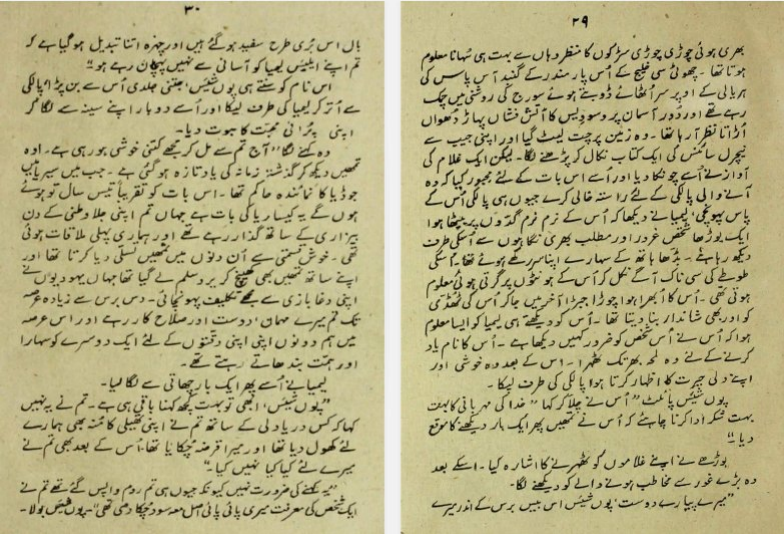 ۲۹
بھری ہوئی چوڑی چوڑی سڑکوں کا منظر وہاں سے بہت ہی سُہانا معلوم
ہوتا تھا۔ چھوٹی سی خلیج کے اُس پار مندر کے گنبد آس پاس کی
ہریالی کے اوپر سر اُٹھائے ڈوبتے ہوئے سورج کی روشنی میں چمک
رہے تھے اور دُور آسمان پر وسوویس کا آتش فشاں پہاڑ دُھواں
اُڑاتا نظر آ رہا تھا۔ وہ زمین پر چت لیٹ گیا اور اپنی جیب سے
نیچرل سائنس کی ایک کتاب نکال کر پڑھنے لگا۔ لیکن ایک غلام کی
آواز نے اُسے چونکا دیا اور اُسے اس بات کے لئے مجبور کیا کہ وہ
آنے والی پالکی کے لئے راستہ خالی کرے جیوں ہی پالکی اُس کے
پاس پہونچی، لیمیا نے دیکھا کہ اُس کے نرم نرم گدّوں پر بیٹھا ہوا
ایک بوڑھا شخص غرور اور مطلب بھری نگاہوں سے اُسکی طرف
دیکھ رہا ہے۔ بڈھا ہاتھ کے سہارے اپنا سر رکھے ہوئے تھا۔ اُسکی
طوطے کی سی ناک آگے نکل کر اُس کے ہونٹوں پر گرتی ہوئی معلوم
ہوتی تھی۔ اُس کا اُبھرا ہوا چوڑا جبڑا آخر میں جا کر اُس کی ٹھڈی
کو اور بھی شاندار بنا دیتا تھا۔ اُس کو دیکھتے ہی لیمیا کو ایسا معلوم
ہوا کہ اُس نے اُس شخص کو ضرور کہیں دیکھا ہے۔ اُس کا نام یاد
کرنے کے لئے وہ لمحہ بھر تک ٹھہرا۔ اس کے بعد وہ خوشی اور
اپنے دلی حیرت کا اظہار کرتا ہوا پالکی کی طرف لپکا۔
پوں شیئس پائلٹ" اُس نے چلا کر کہا "خدا کی مہربانی کا بہت
بہت شکر ادا کرنا چاہئے کہ اُس نے تمھیں پھر ایک بار دیکھنے کا موقع
دیا۔"
بوڑھے نے اپنے غلاموں کو ٹھہرنے کا اشارہ کیا۔ اسکے بعد
وہ بڑے غور سے مخاطب ہونے والے کو دیکھنے لگا۔
"میرے پیارے دوست، پوں شیئس اس بیس برس کے اندر میرے
۳۰
بال اس بُری طرح سفید ہو گئے ہیں اور چہرہ اتنا تبدیل ہو گیا ہے کہ
تم اپنے ایلیئس لیمیا کو آسانی سے نہیں پہچان رہے ہو"
اس نام کو سنتے ہی پوں شیئس، جتنی جلدی اُس سے بن پڑا، پالکی
سے اُتر کر لیمیا کی طرف لپکا اور اُسے دوبارہ اپنے سینہ سے لگا کر
اپنی پُرانی محبت کا ثبوت دیا۔
وہ کہنے لگا "آج تم سے مل کر مجھے کتنی خوشی ہو رہی ہے۔ اوہ
تمھیں دیکھ کر گذشتہ زمانہ کی یاد تازہ ہو گئی ہے۔ جب میں سیریا میں
جوڈیا کا نمائندہ حاکم تھا۔ اس بات کو تقریباً تیس سال تو ہوئے
ہوں گے یہ کیساریا کی بات ہے جہاں تم اپنی جلا وطنی کے دن
بیزاری کے ساتھ گذار رہے تھے اور ہماری پہلی ملاقات ہوئی
تھی۔ خوش قسمتی سے اُن دنوں میں تمھیں تسلی دیا کرتا تھا اور
اپنے ساتھ تمھیں بھی کھینچ کر یروسلم لے گیا تھا جہاں یہودیوں نے
اپنی دغا بازی سے مجھے تکلیف پہونچائی۔ دس برس سے زیادہ عرصہ
تک تم میرے مہمان، دوست اور صلاح کار رہے اور اس عرصہ
میں ہم دونوں اپنی اپنی دقتوں کے لئے ایک دوسرے کو سہارا
اور ہمت بندھاتے رہتے تھے۔
لیمیا نے اُسے پھر ایک بار چھاتی سے لگا لیا۔
"پوں شیئس، ابھی تو بہت کچھ کہنا باقی ہی ہے۔ تم نے یہ نہیں
کہا کہ کس دریا دلی کے ساتھ تم نے اپنی تھیلی کا منہ بھی ہمارے
لئے کھول دیا تھا اور میرا قرضہ چُکایا تھا۔ اُس کے بعد بھی تم نے
میرے لئے کیا کیا نہیں کیا۔"
"یہ کہنے کی ضرورت نہیں کیونکہ جیوں ہی تم روم واپس گئے تھے تم نے
ایک شخص کی معرفت میری پائی پائی اصل معہ سود چُکا دی تھی" پوں شیئس بولا۔